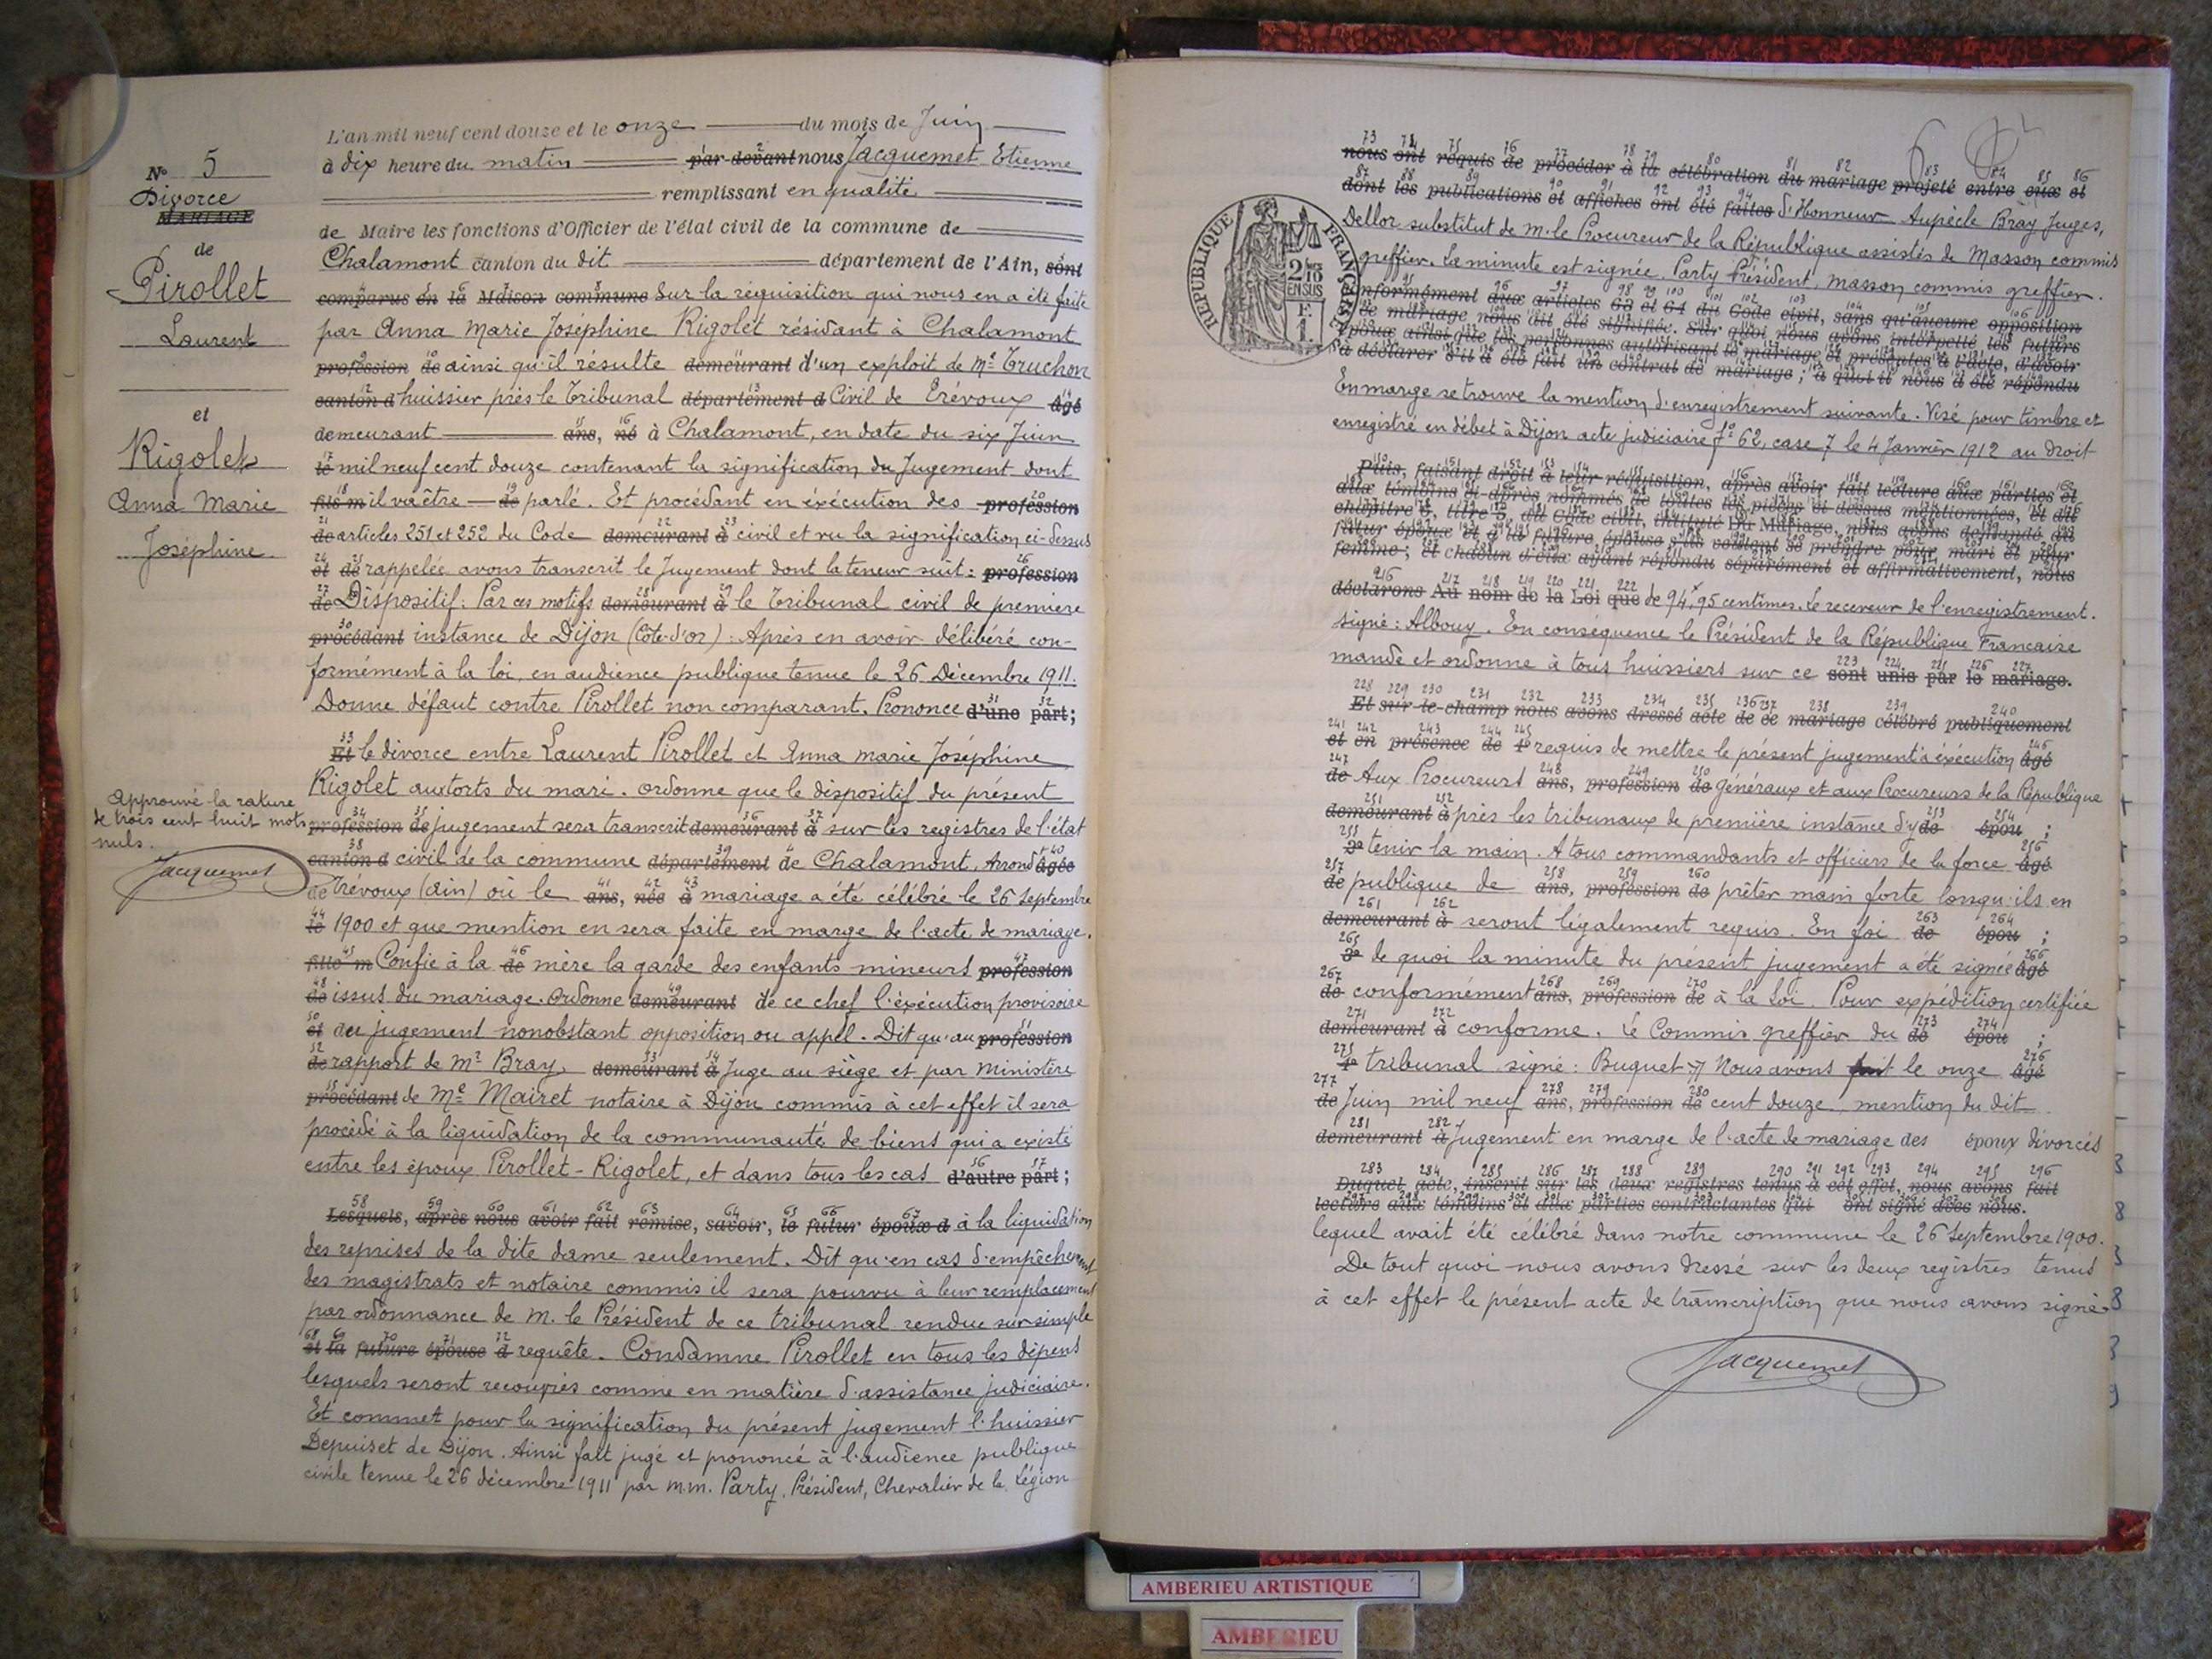 N° 5
Divorce
MARIAGE
de
Pirollet
Laurent
et
Rigolet
Anna Marie
Joséphine
Approuvé la rature
de trois cent huit mots
nuls.
Jacquemet
L'an mil neuf cent douze et le onze du mois de Juin
à dix heure du matin par devant nous Jacquemet Etienne
remplissant en qualité
de Maire les fonctions d'Officier de l'état civil de la commune de
Chalamont canton du dit département de l'Ain, sont
comparus en la Maison commune Sur la réquisition qui nous en a été faite
par Anna Marie Joséphine Rigolet résidant à Chalamont
profession de ainsi qu'il résulte demeurant d'un exploit de Me Truchon
canton d huissier près le Tribunal département d Civil de Trévoux âgé
demeurant ans, né à Chalamont, en date du six Juin
le mil neuf cent douze contenant la signification du Jugement dont
fils m il va être de parlé. Et procédant en éxécution des profession
de articles 251 et 252 du Code demeurant à civil et vu la signification ci-dessus
et de rappelée avons transcrit le Jugement dont la teneur suit : profession
de Dispositif : Par ces motifs demeurant à le Tribunal civil de première
procédant instance de Dijon (Côte-d'or) : Après en avoir délibéré con-
formément à la loi, en audience publique tenue le 26 Décembre 1911.
Donne défaut contre Pirollet non comparant. Prononce d'une part ;
Et le divorce entre Laurent Pirollet et Anna Marie Joséphine
Rigolet aux torts du mari. Ordonne que le dispositif du présent
profession de jugement sera transcrit demeurant à sur les registres de l'état
canton d civil de la commune département de Chalamont, Arrondt âgée
de Trévoux (Ain) où le ans, née à mariage a été célébré le 26 Septembre
le 1900 et que mention en sera faite en marge de l'acte de mariage.
fille m Confie à la de mère la garde des enfants mineurs profession
de issus du mariage. Ordonne demeurant de ce chef l'éxécution provisoire
et du jugement nonobstant opposition ou appel. Dit qu'au profession
de rapport de Mr Bray, demeurant à Juge au siège et par Ministère
procédant de Me Mairet notaire à Dijon commis à cet effet il sera
procédé à la liquidation de la communauté de biens qui a existé
entre les époux Pirollet-Rigolet, et dans tous les cas d'autre part ;
Lesquels, après nous avoir fait remise, savoir, le futur époux d à la liquidation
des reprises de la dite dame seulement. Dit qu'en cas d'empêchement
des magistrats et notaire commis il sera pourvu à leur remplacement
par ordonnance de M. le Président de ce tribunal rendue sur simple
et la future épouse d requête. Condamne Pirollet en tous les dépens
lesquels seront recouvrés comme en matière d'assistance judiciaire.
Et commet pour la signification du présent jugement l'huissier
Depuiset de Dijon. Ainsi fait jugé et prononcé à l'audience publique
civile tenue le 26 décembre 1911 par M.M. Party, Président, Chevalier de la Légion
nous ont requis de procéder à la célébration du mariage projeté entre eux et
dont les publications et affiches ont été faites d'Honneur Aupècle Bray Juges,
Dellor substitut de M. le Procureur de la République assistés de Masson commis
greffier. La minute est signée. Party Président, Masson commis greffier.
REPUBLIQUE FRANÇAISE
2/10 EN SUS
F. 1
conformément aux articles 63 et 64 du Code civil, sans qu'aucune opposition
de mariage nous ait été signifiée. Sur quoi nous avons interpellé les futurs
époux ainsi que les personnes autorisant le mariage et présentes à l'acte, d'avoir
à déclarer s'il a été fait un contrat de mariage ; à quoi il nous a été répondu
En marge se trouve la mention d'enregistrement suivante. Visé pour timbre et
enregistré en débet à Dijon acte judiciaire fo 62, case 7 le 4 Janvier 1912 au droit
Puis, faisant droit à leur réquisition, après avoir fait lecture aux parties et
aux témoins ci-après nommés de toutes les pièces ci dessus mentionnées, et du
chapitre 6, titre 5, du Code civil, intitulé Du Mariage, nous avons demandé au
futur époux et à la future épouse s'ils veulent se prendre pour mari et pour
femme ; et chacun d'eux ayant répondu séparément et affirmativement, nous
déclarons Au nom de la Loi que de 94f,95 centimes. Le receveur de l'enregistrement.
signé : Albouy. En conséquence le Président de la République Française
mande et ordonne à tous huissiers sur ce sont unis par le mariage.
Et sur-le-champ nous avons dressé acte de ce mariage célébré publiquement
et en présence de 1° requis de mettre le présent jugement à éxécution âgé
de Aux Procureurs ans, profession de Généraux et aux Procureurs de la République
demeurant à près les tribunaux de première instance d'y de épou ;
2° tenir la main. A tous commandants et officiers de la force âgé
de publique de ans, profession de prêter main forte lorsqu'ils en
demeurant à seront légalement requis. En foi de épou ;
3° de quoi la minute du présent jugement a été signée âgé
de conformément ans, profession de à la Loi. Pour expédition certifiée
demeurant à conforme. Le Commis greffier du de épou ;
4° tribunal signé : Buguet Nous avons fait le onze âgé
de Juin mil neuf ans, profession de cent douze mention du dit
demeurant à Jugement en marge de l'acte de mariage des époux divorcés
Duquel acte, inscrit sur les deux registres tenus à cet effet, nous avons fait
lecture aux témoins et aux parties contractantes qui ont signé avec nous.
lequel avait été célébré dans notre commune le 26 Septembre 1900.
De tout quoi nous avons dressé sur les deux registres tenus
à cet effet le présent acte de transcription que nous avons signé
Jacquemet
AMBERIEU ARTISTIQUE
AMBERIEU